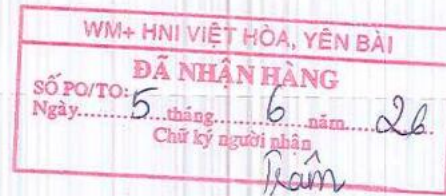 WM+ HNI VIỆT HÒA, YÊN BÀI
ĐÃ NHẬN HÀNG
SỐ PO/TO:
Ngày.......5...tháng.......6.......năm....26
Chữ ký người nhận
Trâm